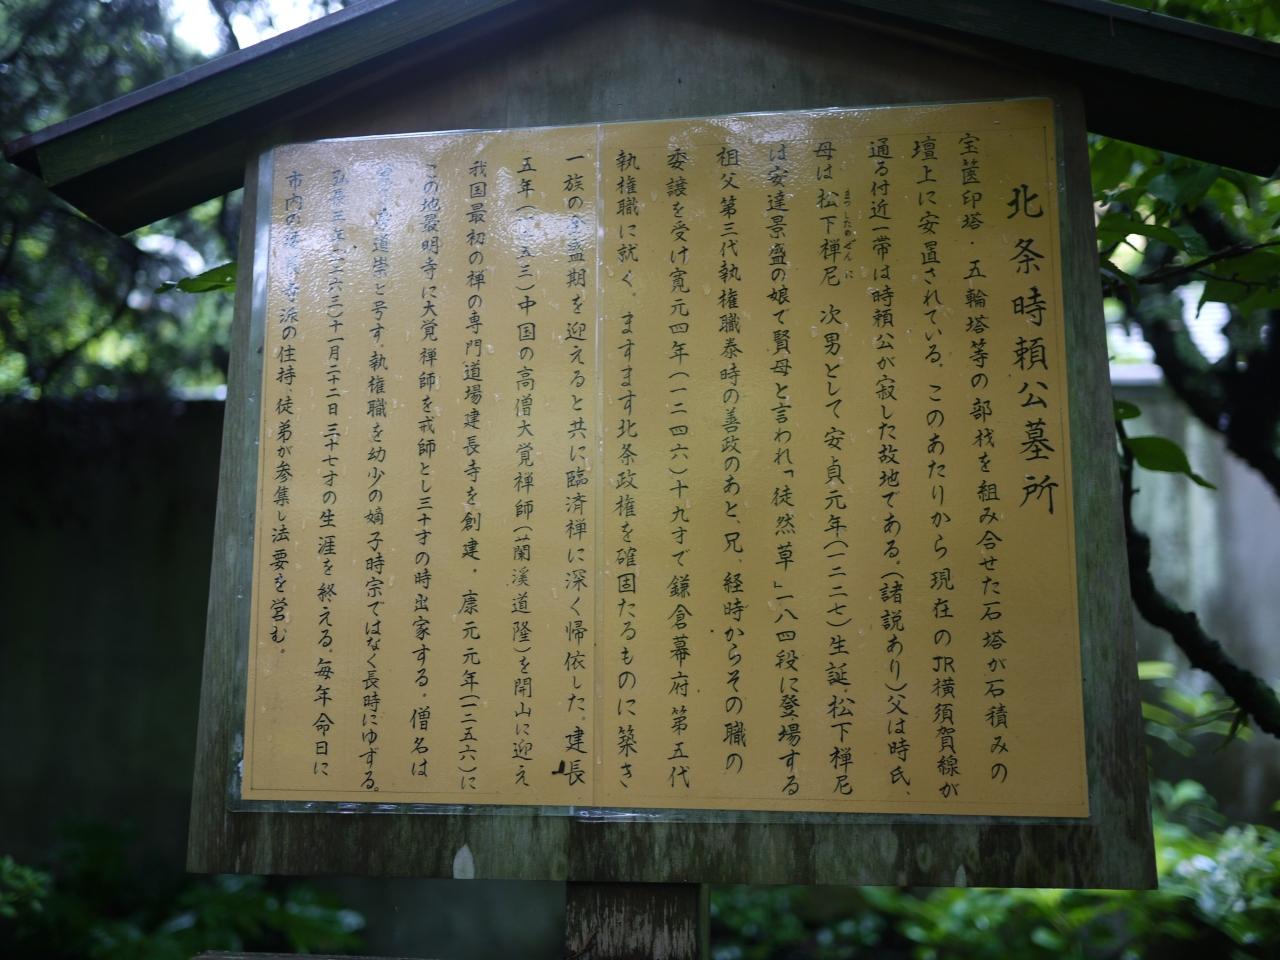 北条時頼公墓所
宝篋印塔・五輪塔等の部材を組み合せた石塔が石積みの
壇上に安置されている。このあたりから現在のJR横須賀線が
通る付近一帯は時頼公が寂した故地である。(諸説あり)父は時氏、
母は松下禅尼 次男として安貞元年(一二二七)生誕.松下禅尼
まつしたのぜんに
は安達景盛の娘で賢母と言われ「徒然草」一八四段に登場する
祖父第三代執権職泰時の善政のあと、兄、経時からその職の
委譲を受け寛元四年(一二四六)十九才で鎌倉幕府第五代
執権職に就く。ますます北条政権を確固たるものに築き
一族の全盛期を迎えると共に臨済禅に深く帰依した。建長
五年(一二五三)中国の高僧大覚禅師(蘭溪道隆)を開山に迎え
我国最初の禅の専門道場建長寺を創建・康元元年(一二五六)に
この地最明寺に大覚禅師を戒師とし三十才の時出家する。僧名は
道崇と号す.執権職を幼少の嫡子時宗ではなく長時にゆずる。
弘長三年(一二六三)十一月二十二日 三十七才の生涯を終える。毎年命日に
市内の 寺派の住持・徒弟が参集し法要を営む。